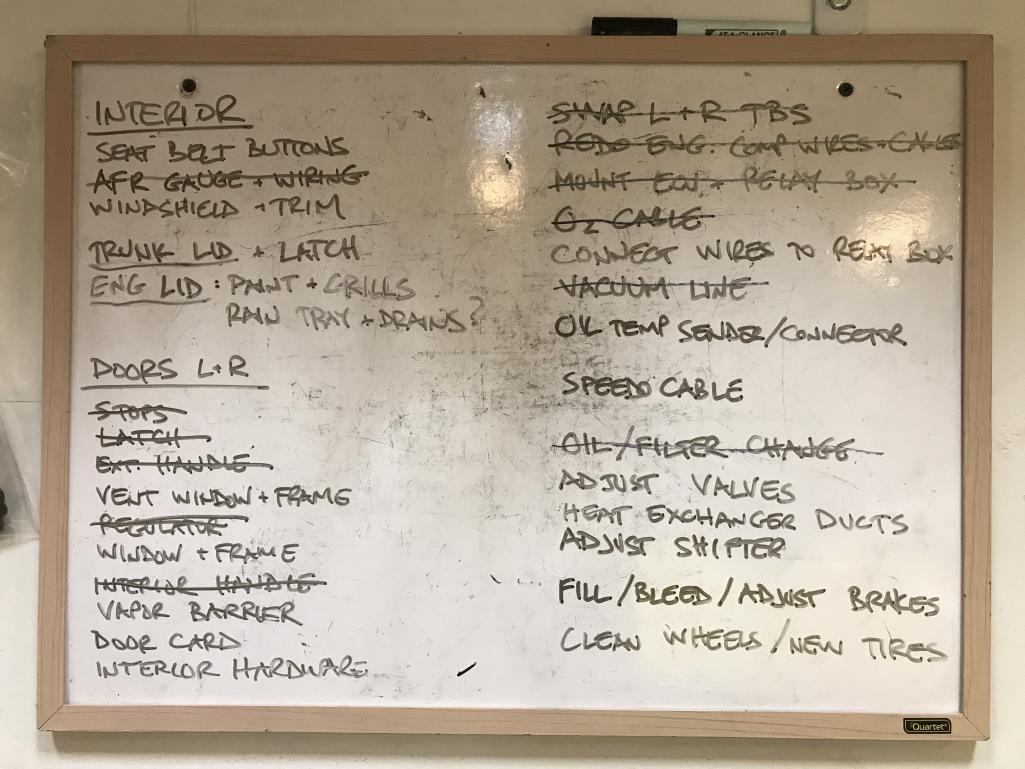 AT-A-GLANCE®
INTERIOR
SEAT BELT BUTTONS
AFR GAUGE + WIRING
WINDSHIELD + TRIM
TRUNK LID + LATCH
ENG LID: PAINT + GRILLS
RAIN TRAY + DRAINS?
DOORS L+R
STOPS
LATCH
EXT. HANDLE
VENT WINDOW + FRAME
REGULATOR
WINDOW + FRAME
INTERIOR HANDLE
VAPOR BARRIER
DOOR CARD
INTERIOR HARDWARE
SWAP L+R TBS
REDO ENG. COMP WIRES + CABLES
MOUNT ECU + RELAY BOX
O2 CABLE
CONNECT WIRES TO RELAY BOX
VACUUM LINE
OIL TEMP SENDER/CONNECTOR
SPEEDO CABLE
OIL/FILTER CHANGE
ADJUST VALVES
HEAT EXCHANGER DUCTS
ADJUST SHIFTER
FILL/BLEED/ADJUST BRAKES
CLEAN WHEELS/NEW TIRES
Quartet®